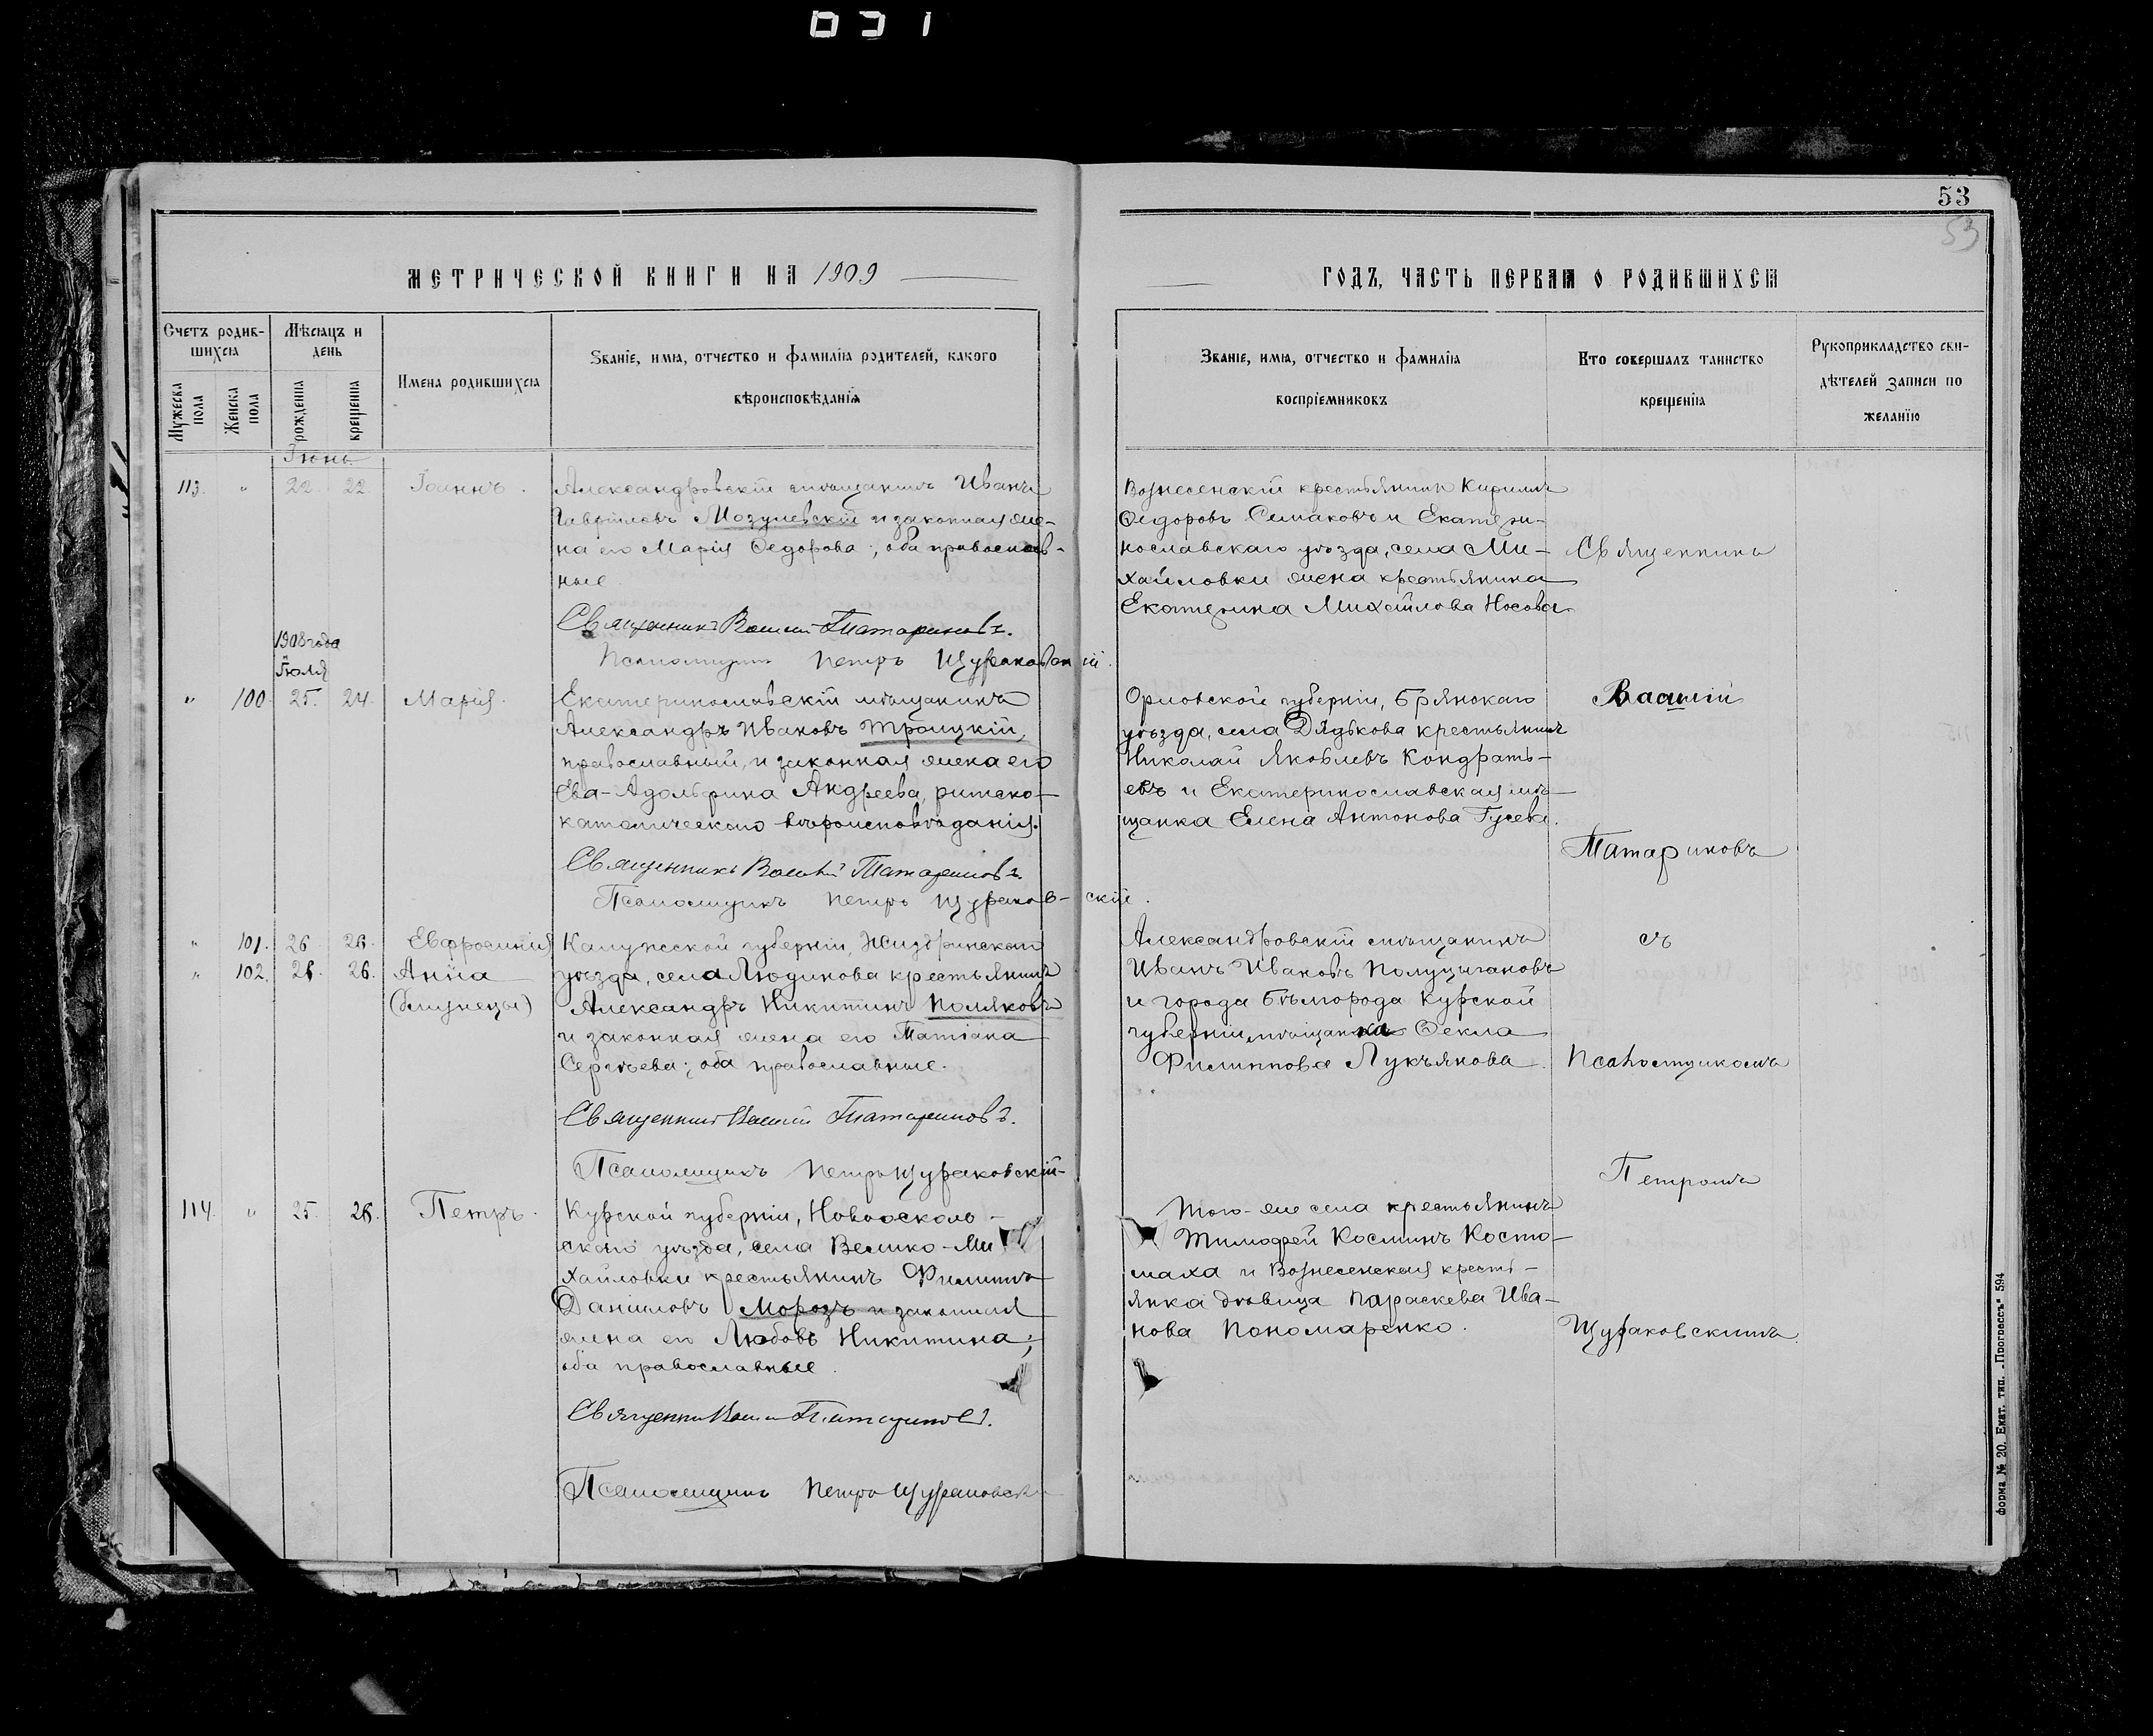 031
53
53
МЕТРИЧЕСКОЙ КНИГИ НА 1909
ГОДЪ, ЧАСТЬ ПЕРВАЯ О РОДИВШИХСЯ
Счетъ родив-
шихся
Мѣсяцъ и
день
Мужеска
пола
Женска
пола
рожденія
крещенія
Имена родившихся
Званіе, имя, отчество и фамилія родителей, какого
вѣроисповѣданія
Званіе, имя, отчество и фамилія
воспріемниковъ
Кто совершалъ таинство
крещенія
Рукоприкладство сви-
дѣтелей записи по
желанію
Іюнь
113. " 22. 22. Іоаннъ.
Александровскій мѣщанинъ Иванъ
Гавріиловъ Мозулевскій и законная же-
на его Марія Ѳедорова; оба православ-
ные
Священникъ Василій Татариновъ.
Псаломщикъ Петръ Щураковскій.
Вознесенскій крестьянинъ Кириллъ
Ѳедоровъ Семаковъ и Екатери-
нославскаго уѣзда, села Ми-
хайловки жена крестьянина
Екатерина Михайлова Носова
Священникъ
1908 года
Іюля
" 100. 25. 24. Марія.
Екатеринославскій мѣщанинъ
Александръ Ивановъ Троицкій,
православный, и законная жена его
Ева-Адольфина Андреева, римско-
католическаго вѣроисповѣданія.
Священникъ Василій Татариновъ.
Псаломщикъ Петръ Щураков-скій.
Орловской губерніи, Брянскаго
уѣзда, села Дядькова крестьянинъ
Николай Яковлевъ Кондрать-
евъ и Екатеринославская мѣ-
щанка Елена Антонова Гусева.
Василій
Татариновъ
" 101. 26. 26. Евфросинія
" 102. 26. 26. Анна
(близнецы)
Калужской губерніи, Жиздринскаго
уѣзда, села Людинова крестьянинъ
Александръ Никитинъ Поляковъ
и законная жена его Татіана
Сергѣева; оба православные.
Священникъ Василій Татариновъ.
Псаломщикъ Петръ Щураковскій
Александровскій мѣщанинъ
Иванъ Ивановъ Полуцыгановъ
и города Бѣлгорода Курской
губерніи мѣщанка Ѳекла
Филиппова Лукъянова.
съ
Псаломщикомъ
Петромъ
114. " 25. 26. Петръ.
Курской губерніи, Новоосколь-
скаго уѣзда, села Велико-Ми
хайловки крестьянинъ Филиппъ
Даніиловъ Морозъ и законная
жена его Любовь Никитина;
оба православные.
Священникъ Василій Татариновъ.
Псаломщикъ Петръ Щураковскій
Того-же села крестьянинъ
Тимофей Косминъ Косто-
маха и Вознесенская кресть-
янка дѣвица Параскева Ива-
нова Пономаренко.
Щураковскимъ.
форма № 20. Екат. тип. „Прогрессъ" 594